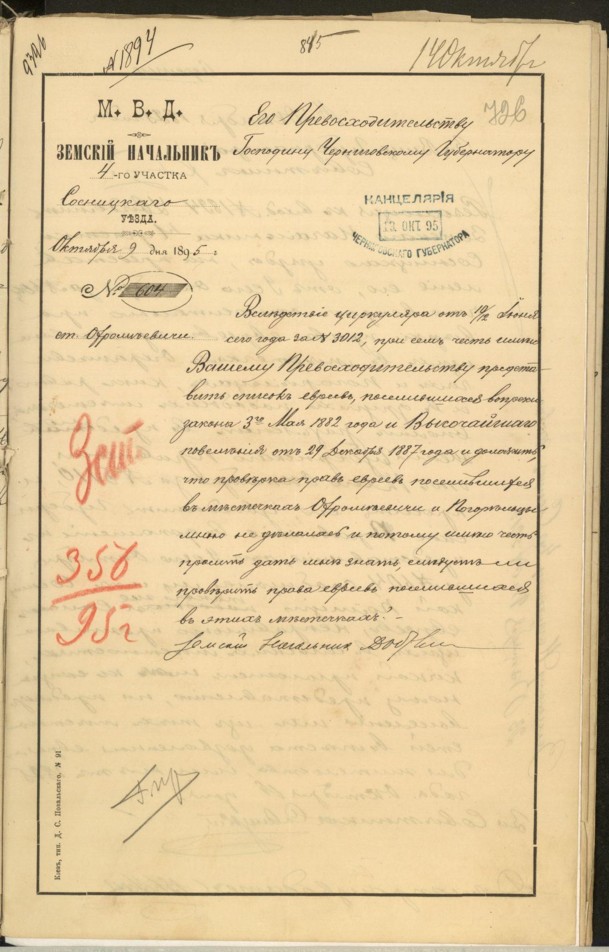 № 1894
815
14 Октября
726
М. В. Д.
ЗЕМСКІЙ НАЧАЛЬНИКЪ
4-го УЧАСТКА
Сосницкаго
УѢЗДА.
Октября 9 дня 1895 г
№ 604
ст. Охромѣевичи.
Его Превосходительству
Господину Черниговскому Губернатору
КАНЦЕЛЯРІЯ
13 ОКТ. 95
ЧЕРНИГОВСКАГО ГУБЕРНАТОРА
Вслѣдствіе циркуляра отъ 10/12 Іюня
сего года за № 3012, при семъ честь имѣю
Вашему Превосходительству предста-
вить списокъ евреевъ, поселившихся вопреки
закона 3го Мая 1882 года и Высочайшаго
повелѣнія отъ 29 Декабря 1887 года и доложить,
что провѣрка правъ евреевъ поселившихся
въ мѣстечкахъ Охромѣевичи и Погорѣльцы
мною не дѣлалась и потому имѣю честь
просить дать мнѣ знать, слѣдуетъ ли
провѣрить права евреевъ поселившихся
въ этихъ мѣстечкахъ.
Земскій Начальникъ
3 ст
356
95 г
Кіевъ, тип. Д. С. Повальскаго. № 91